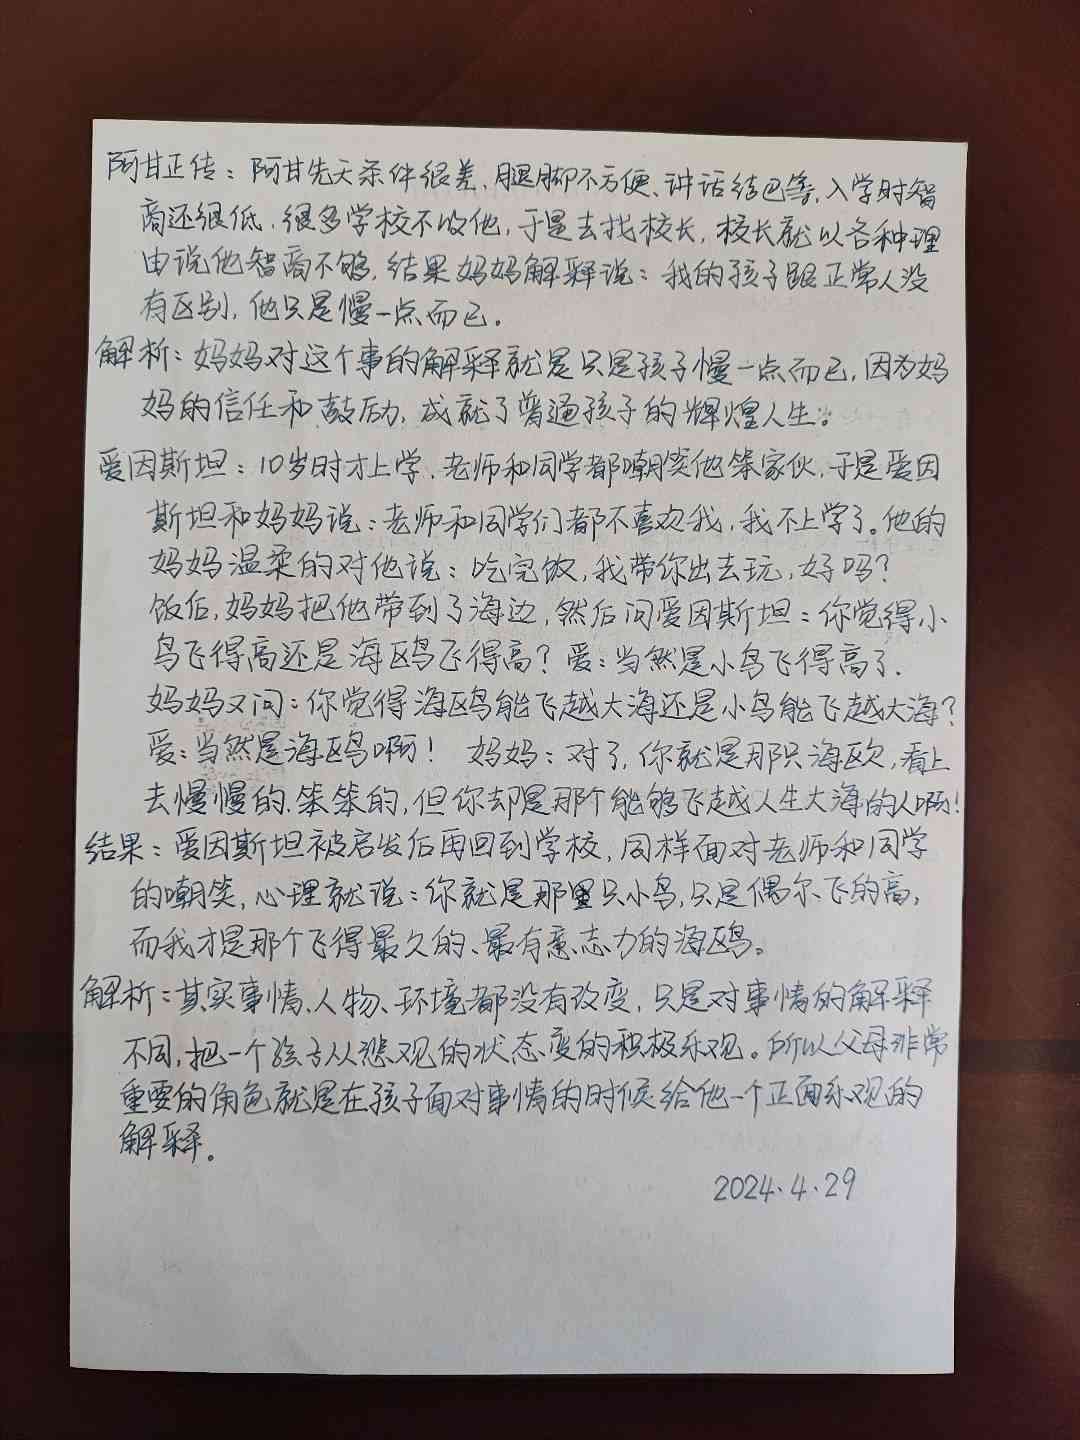 阿甘正传：阿甘先天条件很差、腿脚不方便、讲话结巴等，入学时智
商还很低，很多学校不收他，于是去找校长，校长就以各种理
由说他智商不够，结果妈妈解释说：我的孩子跟正常人没
有区别，他只是慢一点而已。
解析：妈妈对这个事的解释就是只是孩子慢一点而已，因为妈
妈的信任和鼓励，成就了普通孩子的辉煌人生。
爱因斯坦：10岁时才上学，老师和同学都嘲笑他笨家伙，于是爱因
斯坦和妈妈说：老师和同学们都不喜欢我，我不上学了。他的
妈妈温柔的对他说：吃完饭，我带你出去玩，好吗？
饭后，妈妈把他带到了海边，然后问爱因斯坦：你觉得小
鸟飞得高还是海鸥飞得高？爱：当然是小鸟飞得高了．
妈妈又问：你觉得海鸥能飞越大海还是小鸟能飞越大海？
爱：当然是海鸥啊！ 妈妈：对了，你就是那只海欧，看上
去慢慢的、笨笨的，但你却是那个能够飞越人生大海的人啊！
结果：爱因斯坦被启发后再回到学校，同样面对老师和同学
的嘲笑，心理就说：你就是那只小鸟，只是偶尔飞的高，
而我才是那个飞得最久的、最有意志力的海鸥。
解析：其实事情、人物、环境都没有改变，只是对事情的解释
不同，把一个孩子从悲观的状态变的积极乐观。所以父母非常
重要的角色就是在孩子面对事情的时候给他一个正面乐观的
解释。
2024.4.29